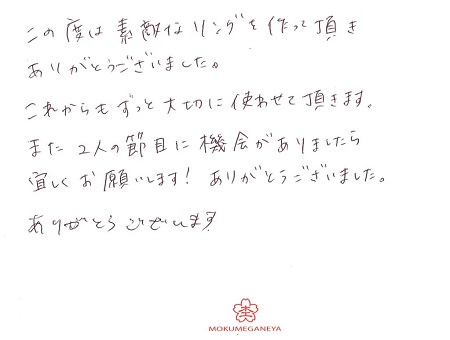 この度は素敵なリングを作って頂き
ありがとうございました。
これからもずっと大切に使わせて頂きます。
また2人の節目に機会がありましたら
宜しくお願いします！ありがとうございました。
ありがとうございます
MOKUMEGANEYA